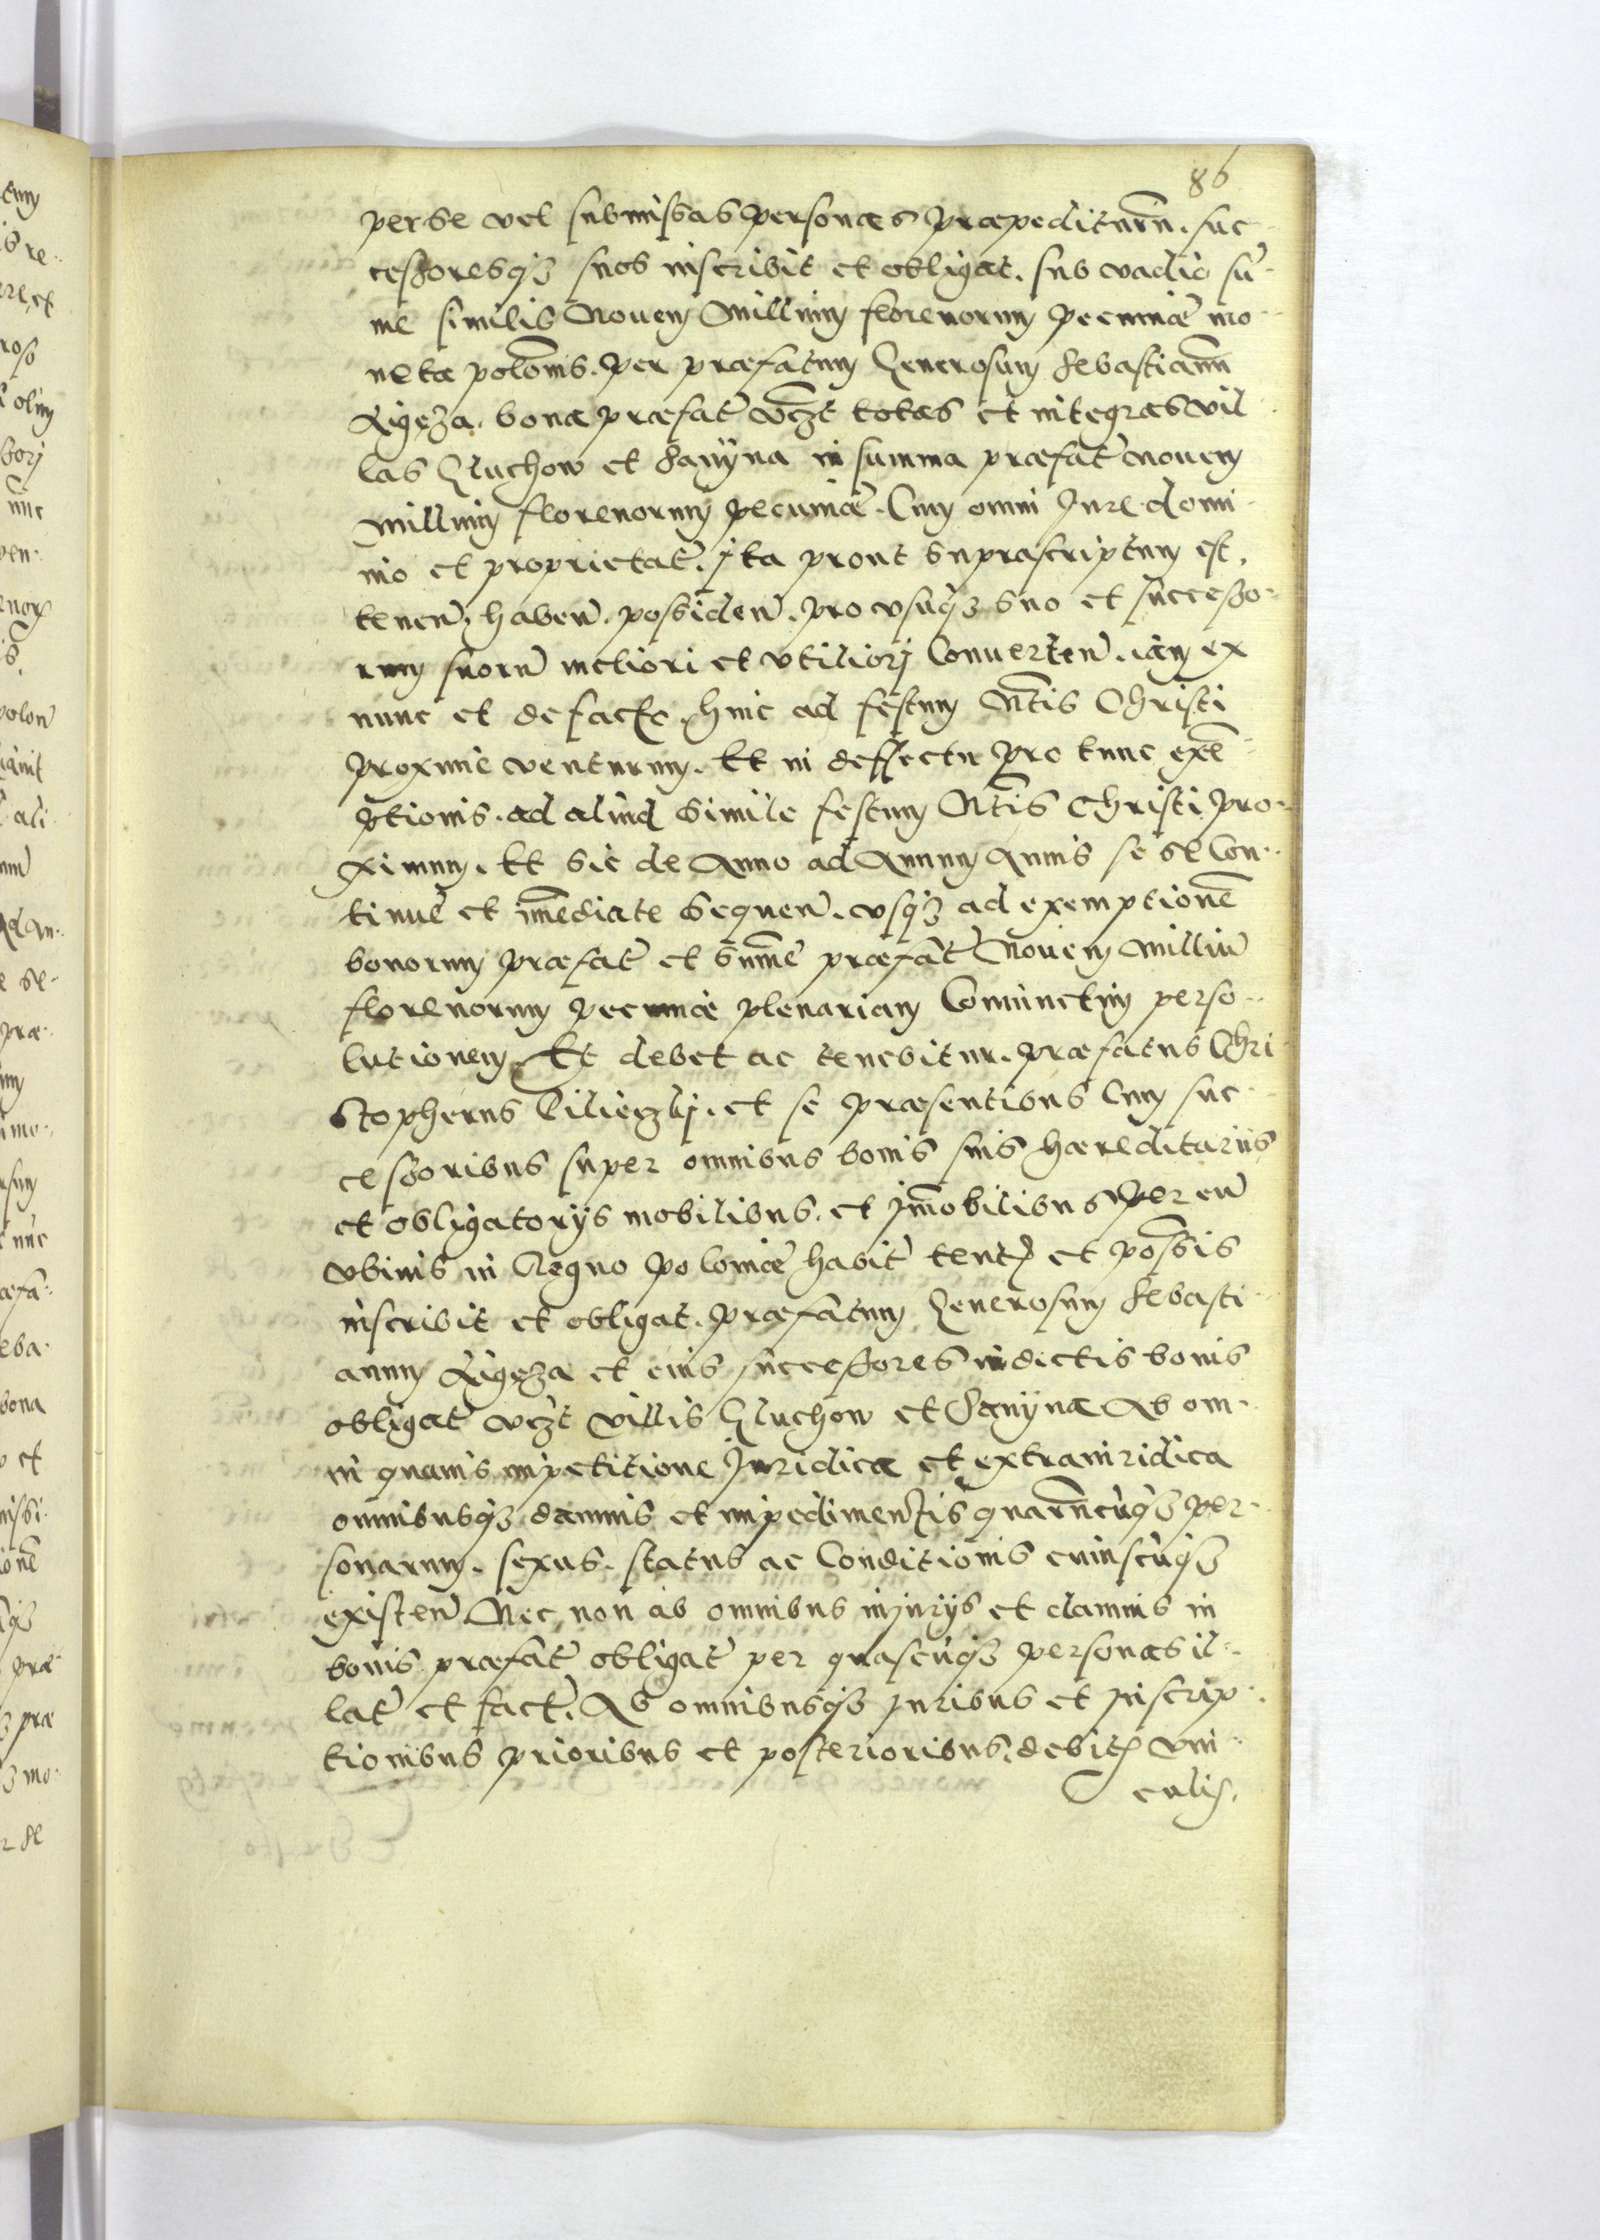 86
per se vel submissas personas præpeditur͠n. suc
cessoresq3 suos inscribit et obligat. sub vadio su͠
me similis Nouem Millium florenorum pecuniæ mo
netæ polon͠is. Per præfatum Generosum Sebastianu͠
Ligęza. bona præfat͠ vcz͠t totas et integras vil
las Gluchow et Sanÿna in summa præfat͠ nouem
millium florenorum pecuniæ. Cum omni Jure domi
nio et proprietat͠. ita prout suprascriptum est.
tenen͠. haben͠. possiden͠. pro vsuq3 suo et successo
rum suoru͠ meliori et vtiliorj Conuerten͠. iam ex
nunc et de facto. hinc ad festum N͠tis Christi
proxime venturum. Et in deffectu pro tunc exe͠
ptionis. ad aliud simile festum N͠tis Christi pro
ximum. Et sic de Anno ad Annum Annis se se Con
tinue et im͠ediate sequen͠. vsq3 ad exemptione͠
bonorum præfat͠ et sum͠e præfat͠ Nouem milliu͠
florenorum pecuniæ plenariam Coniunctim perso
lutionem. Et debet ac tenebitur. præfatus Chri
stopherus Pilieczkj. et se præsentibus Cum suc
cessoribus super omnibus bonis suis hæreditariis
et obligatorÿs mobilibus. et im͠obilibus per eu͠
vbiuis in Regno Poloniæ habit͠ tent͠ et poss͠is
inscribit et obligat. præfatum Generosum Sebasti
anum Ligęza et eius successores in dictis bonis
obligat͠ vcz͠t villis Gluchow et Sanÿna Ab om
ni quauis impetitione Juridica et extraiuridica
omnibusq3 damnis et impedimentis quar͠ncu͠q3 per
sonarum. sexus. status ac Conditionis cuiuscu͠q3
existen͠. Nec non ab omnibus injurÿs et damnis in
bonis præfat͠ obligat͠ per quascu͠q3 personas il
lat͠ et fact͠. Ab omnibusq3 juribus et inscrip
tionibus prioribus et posterioribus. debit͠ vin
culis.